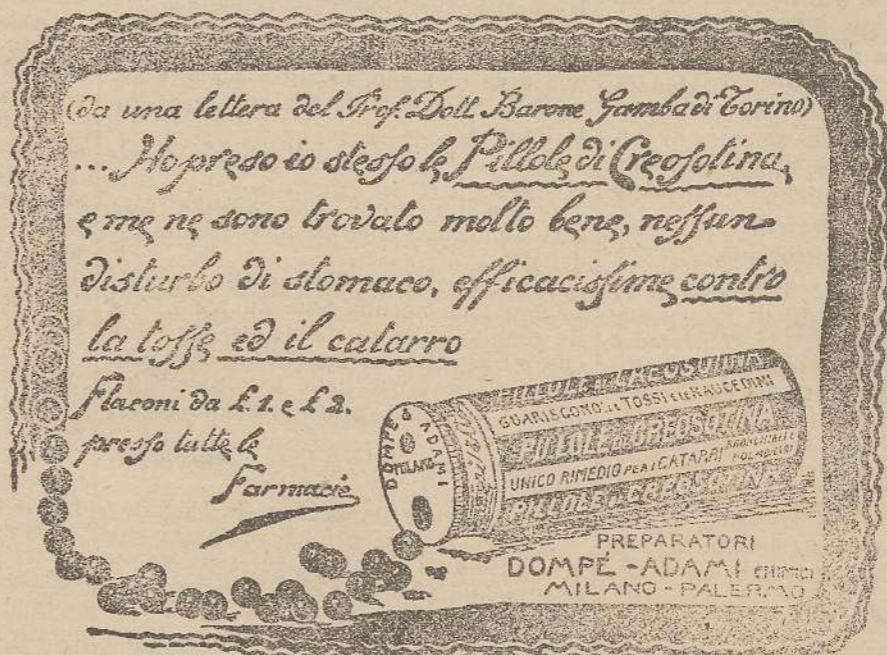 (da una lettera del Prof. Dott. Barone Gamba di Torino)
... Ho preso io stesso le Pillole di Creosotina,
e me ne sono trovato molto bene, nessun
disturbo di stomaco, efficacissime contro
la tosse ed il catarro
Flaconi da £. 1. e £ 2.
presso tutte le
Farmacie
DOMPÉ ADAMI
MILANO
PILLOLE DI CREOSOTINA
GUARISCONO LE TOSSI E LE RAUCEDINI
PILLOLE DI CREOSOTINA
UNICO RIMEDIO PER I CATARRI BRONCHIALI E POLMONARI
PILLOLE DI CREOSOTINA
PREPARATORI
DOMPÉ - ADAMI CHIMICI
MILANO - PALERMO